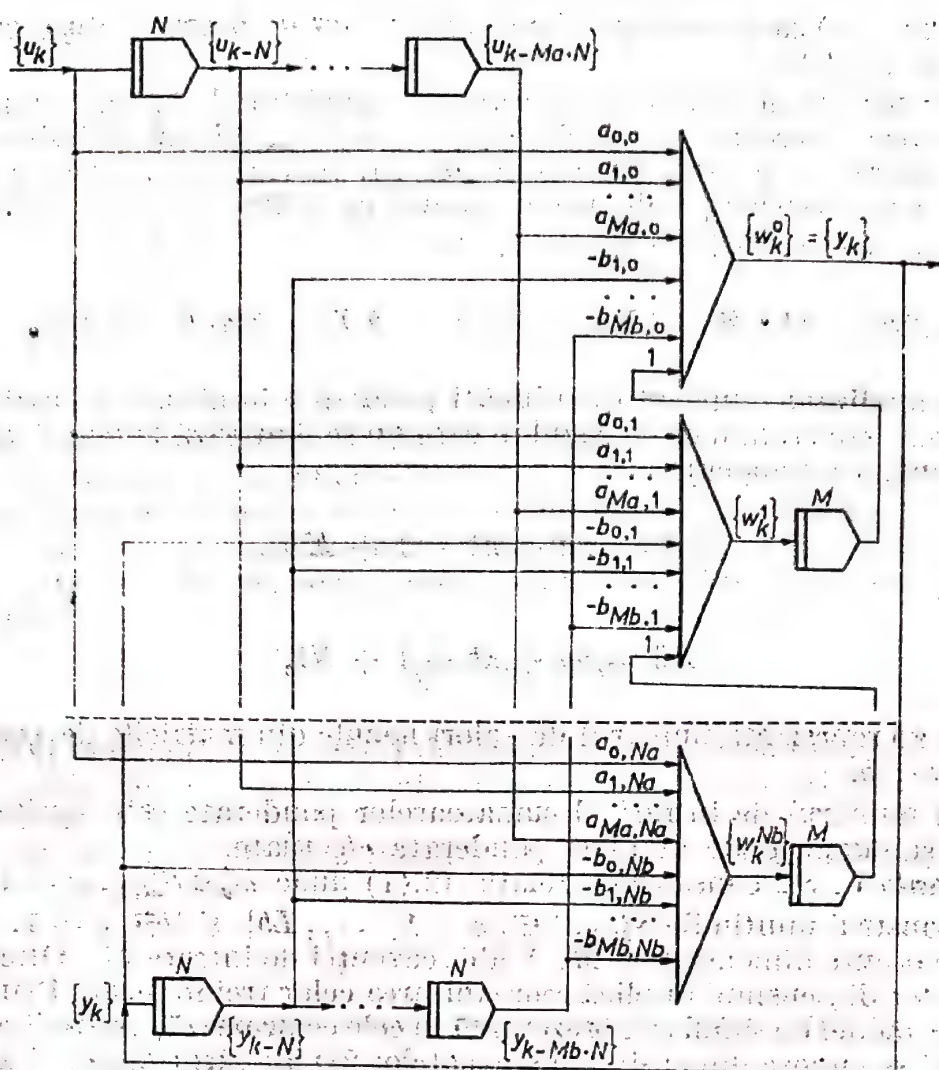 N
{u_k} {u_{k-N}} . . . {u_{k-Ma·N}}
a_{0,0}
a_{1,0}
. . .
a_{Ma,0}
-b_{1,0}
. . .
-b_{Mb,0}
1
{w_k^0} = {y_k}
a_{0,1}
a_{1,1}
. . .
a_{Ma,1}
-b_{0,1}
-b_{1,1}
. . .
-b_{Mb,1}
1
{w_k^1} M
a_{0,Na}
a_{1,Na}
. . .
a_{Ma,Na}
-b_{0,Nb}
-b_{1,Nb}
. . .
-b_{Mb,Nb}
{w_k^{Nb}} M
N N
{y_k} {y_{k-N}} . . . {y_{k-Mb·N}}